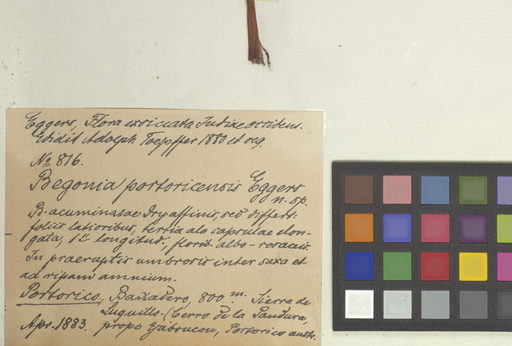 Eggers, Flora exsiccata Indiae occidens.
Edidit Adolph Toepffer 1880 et seq.
No 816.
Begonia portoricensis Eggers
n. sp.
B. acuminatae Dry. affinis, sed differt
foliis latioribus, tertia ala capsulae elon-
gata, longitud., florib. albo-rosaceis.
In praeruptis umbrosis inter saxa et
ad ripam amnium.
Portorico, Bañadero, 800 m. Sierra de
Luquillo. (Cerro de la Pandura,
Apr. 1883. prope Yabucou, Portorico austr.